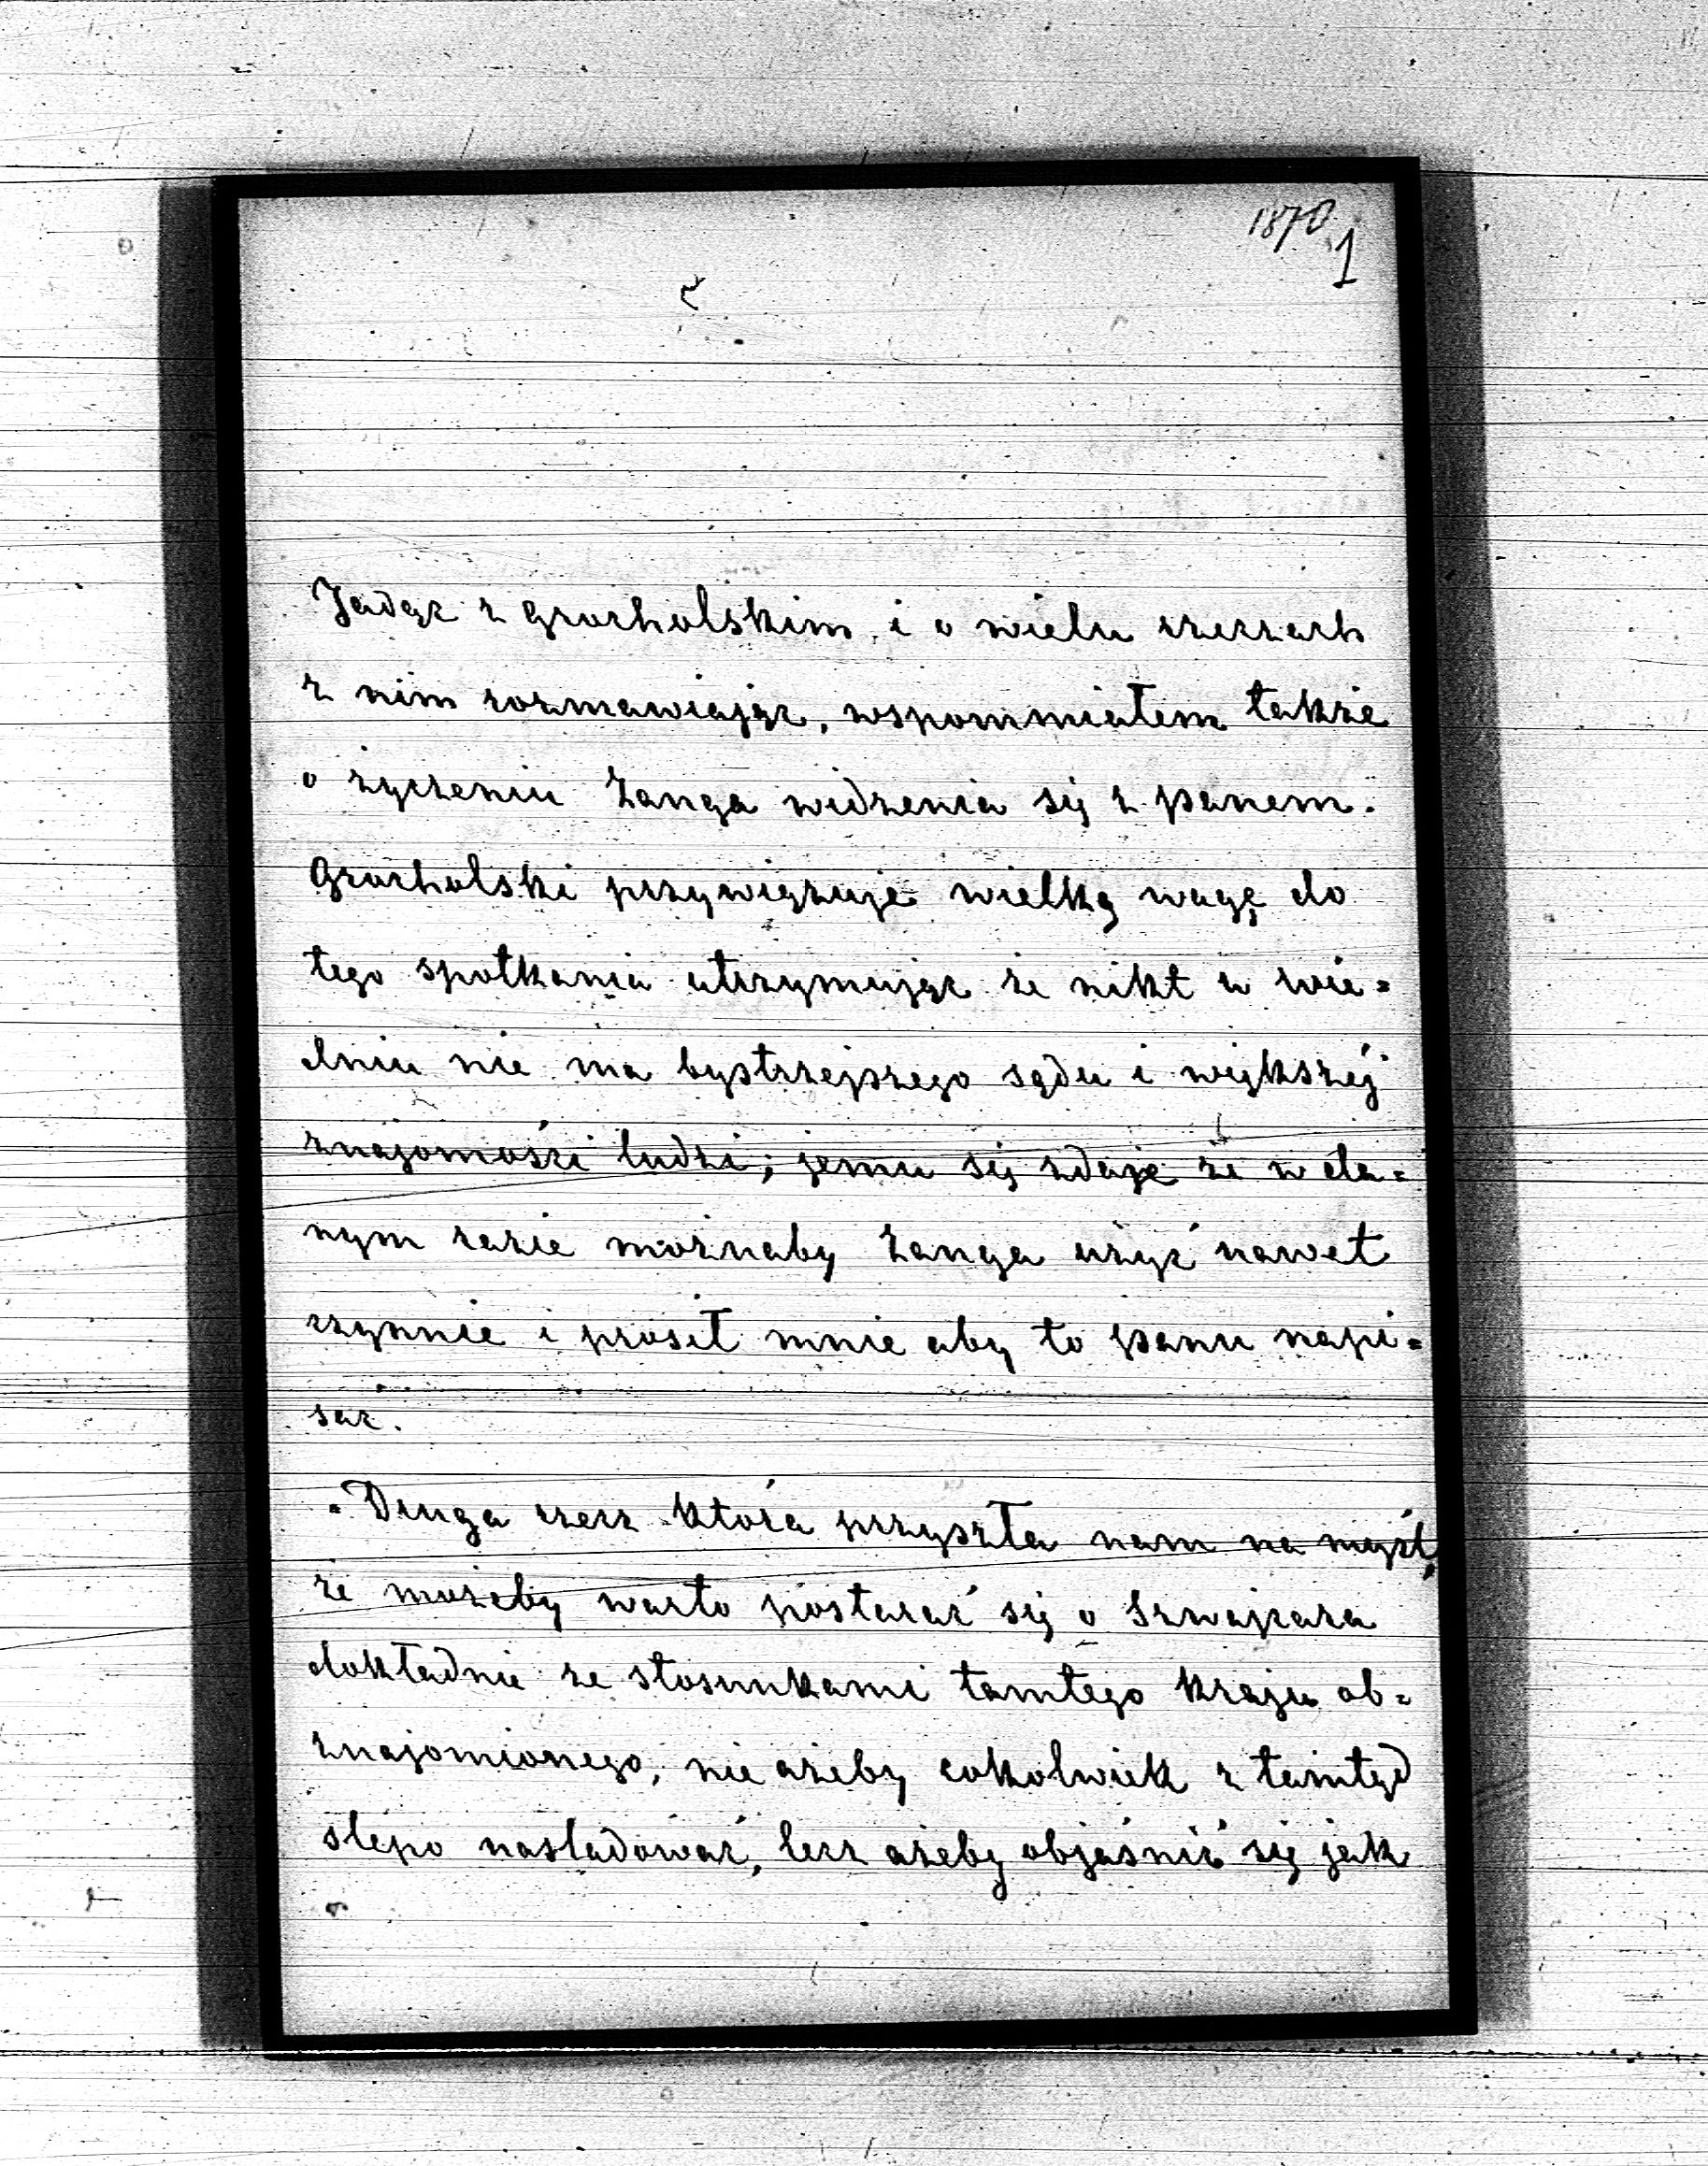 1870
1
Jadąc z Grocholskim i o wielu rzeczach
z nim rozmawiając, wspomniałem także
o życzeniu Langa widzenia się z panem.
Grocholski przywiązuje wielką wagę do
tego spotkania utrzymując że nikt w Wie=
dniu nie ma bystrzejszego sądu i większéj
znajomości ludzi; jemu się zdaje że w da=
nym razie możnaby Langa użyć nawet
czynnie i prosił mnie aby to panu napi=
sać.
Druga rzecz która przyszła nam na myśl,
że możeby warto postarać się o Szwajcara
dokładnie ze stosunkami tamtego kraju ob=
znajomionego, nie ażeby cokolwiek z tamtąd
slepo nasladować, lecz ażeby objaśnić się jak